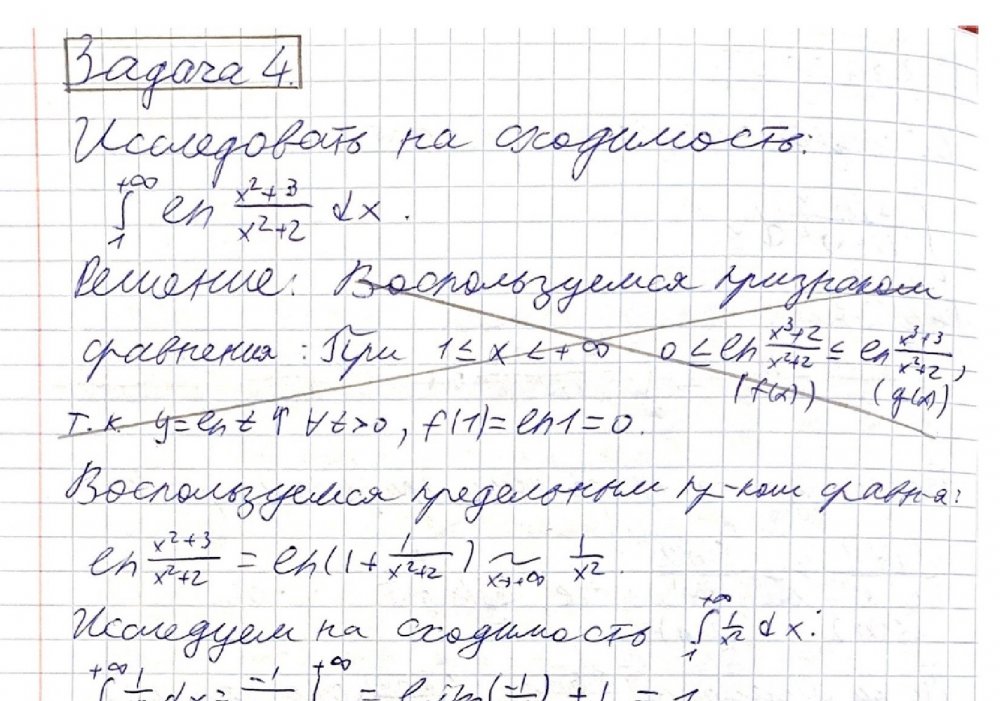 Задача 4.
Исследовать на сходимость:
∫₁^{+∞} ln (x²+3)/(x²+2) dx.
Решение: Воспользуемся признаком
сравнения: При 1 ≤ x < +∞ 0 ≤ ln (x³+2)/(x²+2) ≤ ln (x³+3)/(x²+2),
(f(x)) (g(x))
т.к. y=ln t ↑ ∀t>0, f(1)=ln1=0.
Воспользуемся предельным пр-ком сравн-я:
ln (x²+3)/(x²+2) = ln(1+ 1/(x²+2)) ~ x→+∞ 1/x².
Исследуем на сходимость ∫₁^{+∞} 1/x² dx: